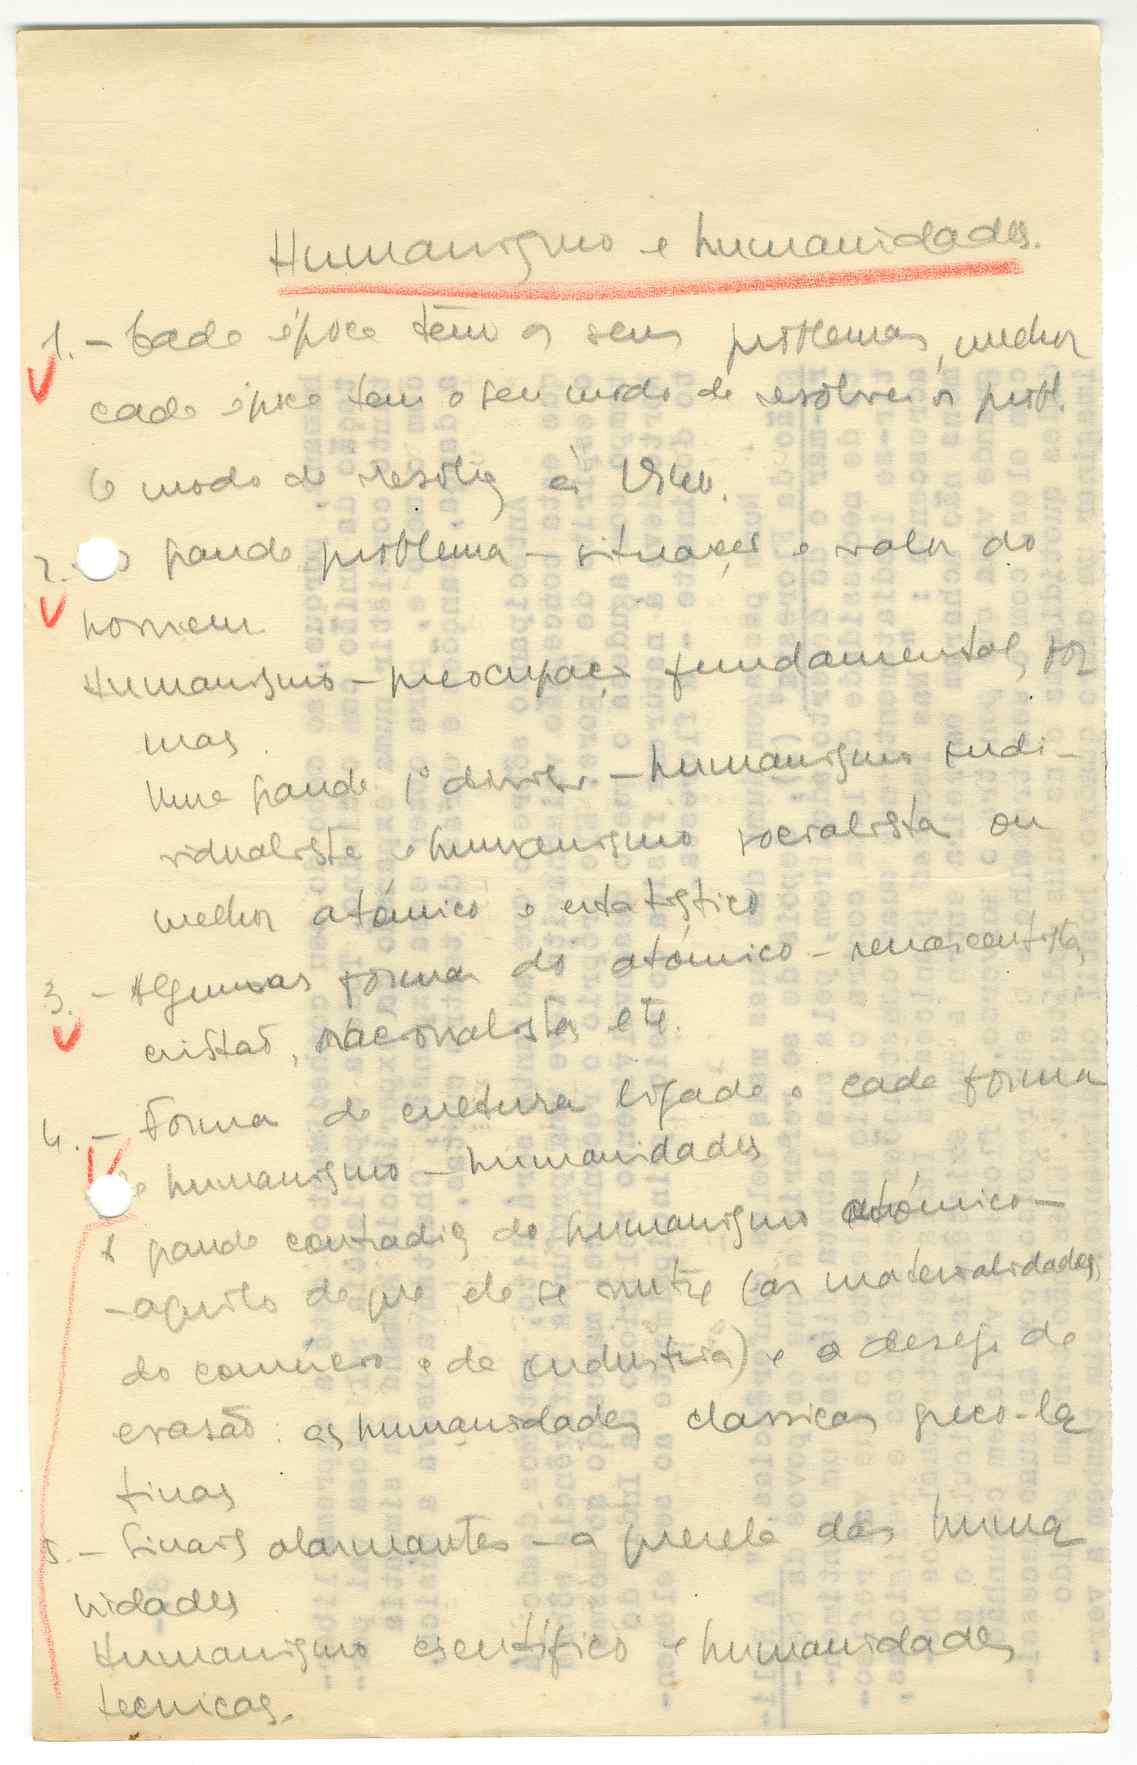 Humanismo e humanidades.
1. - Cada época tem os seus problemas, melhor
cada época tem o seu modo de resolver os probl.
O modo de resolver é
2. - O grande problema - situação e valor do
homem
Humanismo - preocupação fundamental, for
mas.
Uma grande 1ª divisão - humanismo indi-
vidualista e humanismo socialista ou
melhor atómico e estatístico
3. - Algumas formas do atómico - renascentista,
cristão, racionalista, etc.
4. - Forma de cultura ligada a cada forma
de humanismo - humanidades
A grande contradição do humanismo atómico -
- aquilo de que ele se nutre (as materialidades
do comércio e da indústria) e o desejo de
evasão: as humanidades classicas greco-la
tinas
5. - Sinais alarmantes - a querela das huma
nidades
Humanismo científico e humanidades
tecnicas.